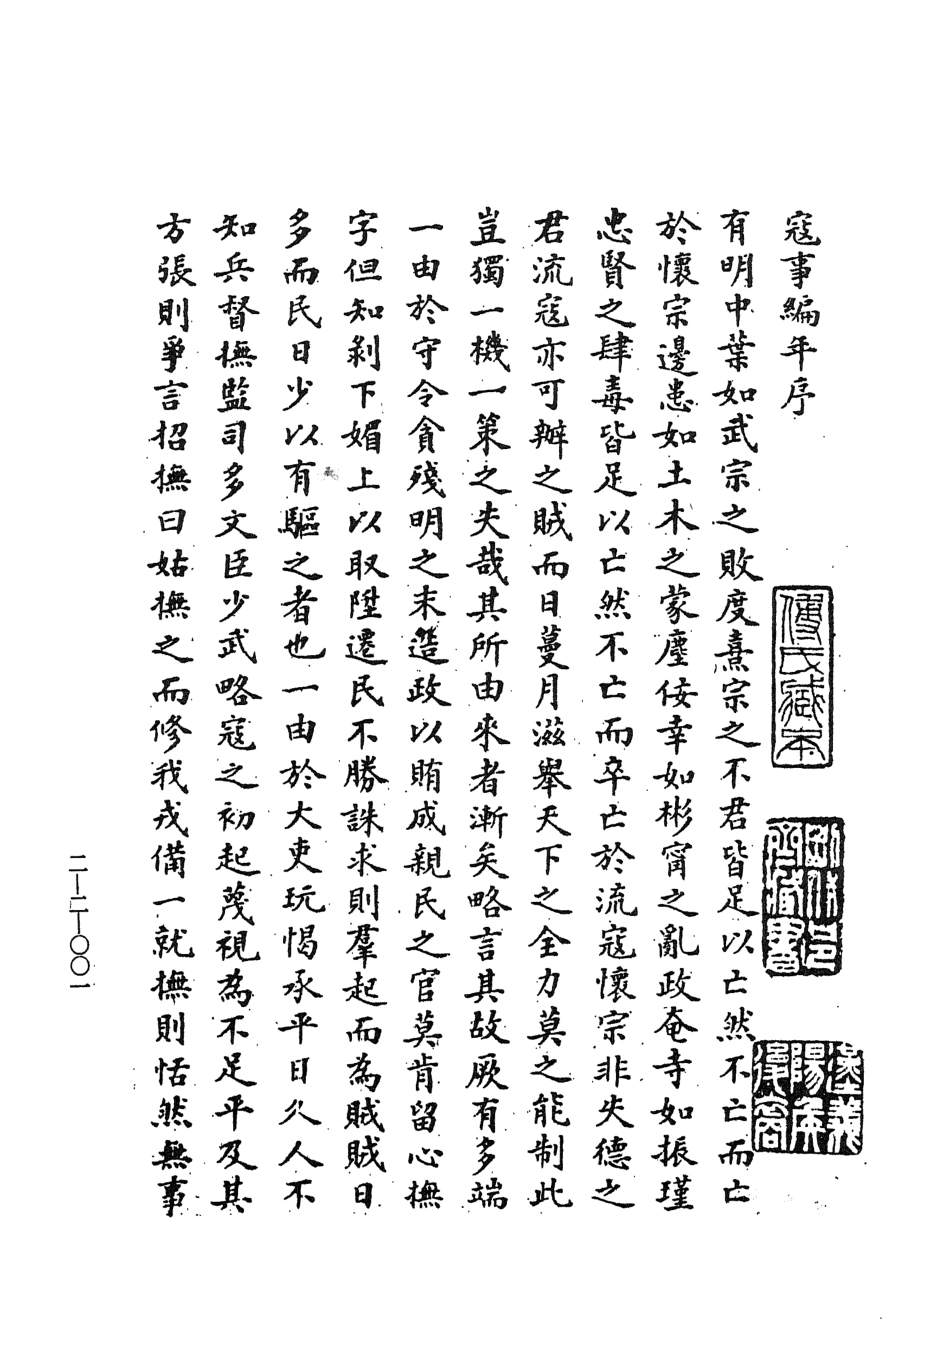 寇事編年序
有明中葉如武宗之敗度熹宗之不君皆足以亡然不亡而亡
於懷宗邊患如土木之蒙塵佞幸如彬甯之亂政奄寺如振瑾
忠賢之肆毒皆足以亡然不亡而卒亡於流寇懷宗非失德之
君流寇亦可辦之賊而日蔓月滋舉天下之全力莫之能制此
豈獨一機一策之失哉其所由來者漸矣略言其故厥有多端
一由於守令貪殘明之末造政以賄成親民之官莫肯留心撫
字但知剝下媚上以取陞遷民不勝誅求則羣起而為賊賊日
多而民日少以有驅之者也一由於大吏玩愒承平日久人不
知兵督撫監司多文臣少武略寇之初起蔑視為不足平及其
方張則爭言招撫曰姑撫之而修我戎備一就撫則恬然無事
傅氏藏本
二—二—〇〇一